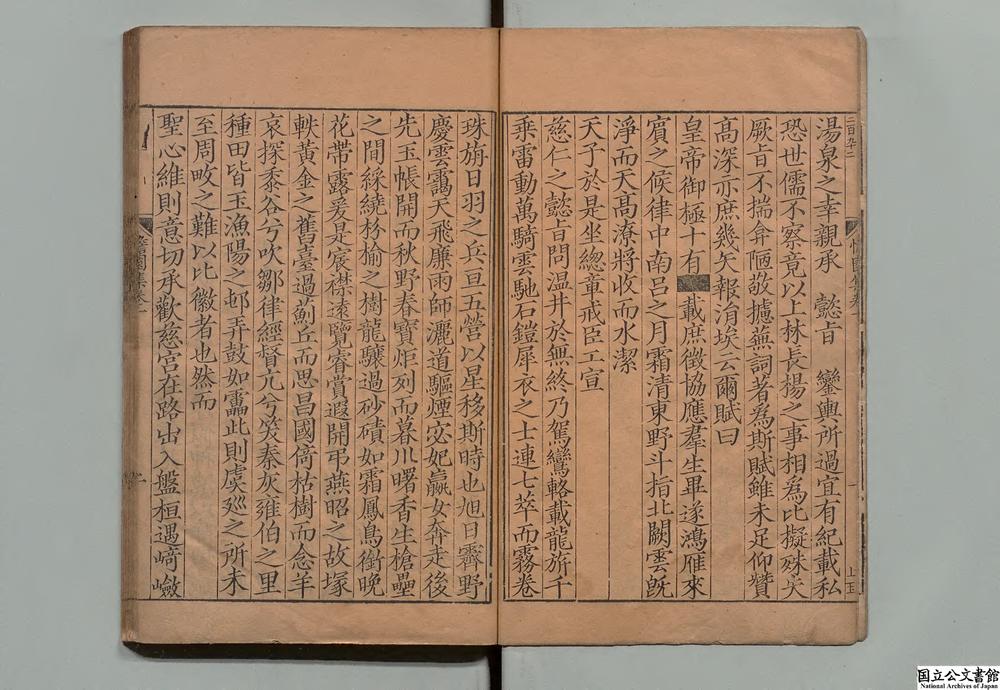 湯泉之幸親承　懿旨　鑾輿所過宜有紀載私
恐世儒不察竟以上林長揚之事相為比擬殊失
厥旨不揣弇陋敬攄蕪詞著為斯賦雖未足仰贊
高深亦庶幾矢報涓埃云爾賦曰
皇帝御極十有■載庶徵協應羣生畢遂鴻雁來
賓之候律中南呂之月霜清東野斗指北闕雲旣
淨而天高潦將收而水潔
天子於是坐總章戒臣工宣
慈仁之懿旨問温井於無終乃駕鸞輅載龍旂千
乘雷動萬騎雲馳石鎧犀衣之士連七萃而霧卷
珠旃日羽之兵亘五營以星移斯時也旭日霽野
慶雲靄天飛廉雨師灑道驅煙宓妃嬴女奔走後
先玉帳開而秋野春寶炬列而暮川曙香生槍壘
之間綵繞枌榆之樹龍驤過砂磧如霜鳳鳥銜晚
花帶露爰是宸襟遠覽睿賞遐開弔燕昭之故塚
軼黃金之舊臺過薊丘而思昌國倚枯樹而念羊
哀探黍谷兮吹鄒律經督亢兮笑秦灰雍伯之里
種田皆玉漁陽之邨弄鼓如靁此則虞廵之所未
至周畋之難以比徽者也然而
聖心維則意切承歡慈宮在路出入盤桓遇崎嶮
国立公文書館
National Archives of Japan